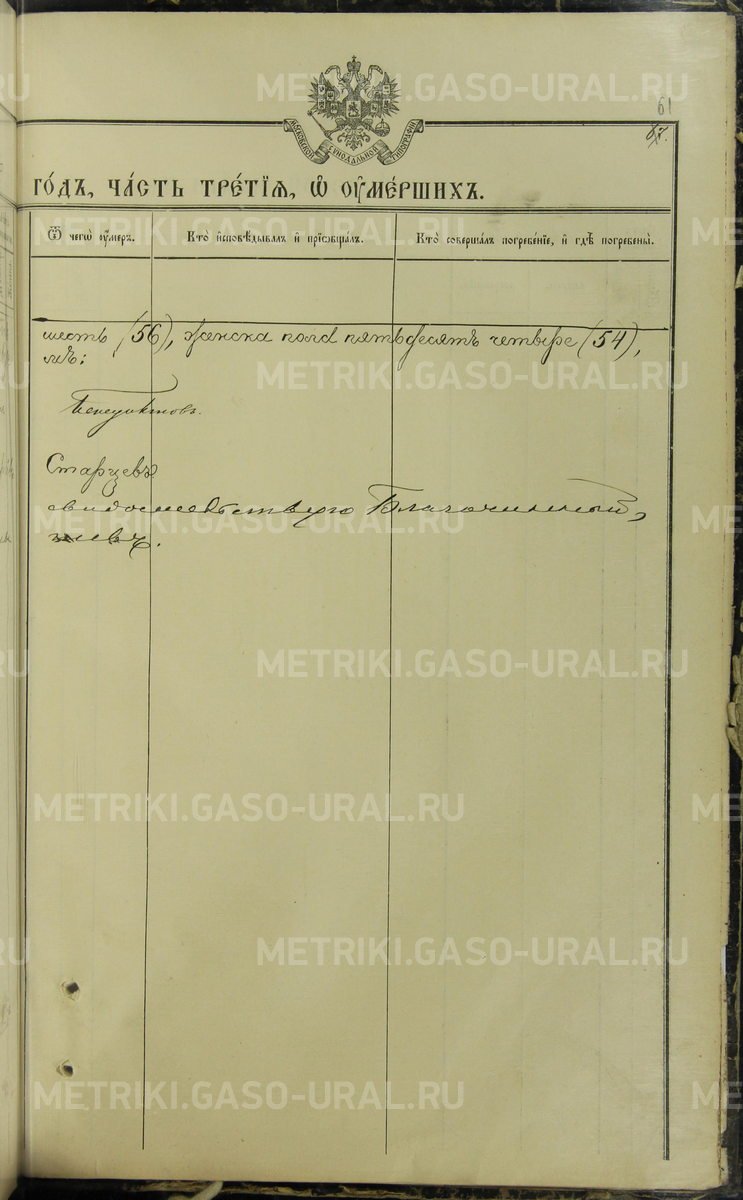 61
67.
МОСКОВСКОЙ СѴНОДАЛЬНОЙ ТИПОГРАФІИ
ГО́ДЪ, ЧА́СТЬ ТРЕ́ТІѦ, Ѡ҆ ОУ҆МЕ́РШИХЪ.
Ѿ чегѡ̀ оу҆́меръ.
Кто̀ и҆сповѣ́дывалъ и҆ прїѡбща́лъ.
Кто̀ соверша́лъ погребе́нїе, и҆ гдѣ̀ погребены̀.
шесть (56), женска пола пятьдесятъ четыре (54),
Старцевъ
свидетельствую Благочинный,
METRIKI.GASO-URAL.RU
METRIKI.GASO-URAL.RU
METRIKI.GASO-URAL.RU
METRIKI.GASO-URAL.RU
METRIKI.GASO-URAL.RU
METRIKI.GASO-URAL.RU
METRIKI.GASO-URAL.RU
METRIKI.GASO-URAL.RU